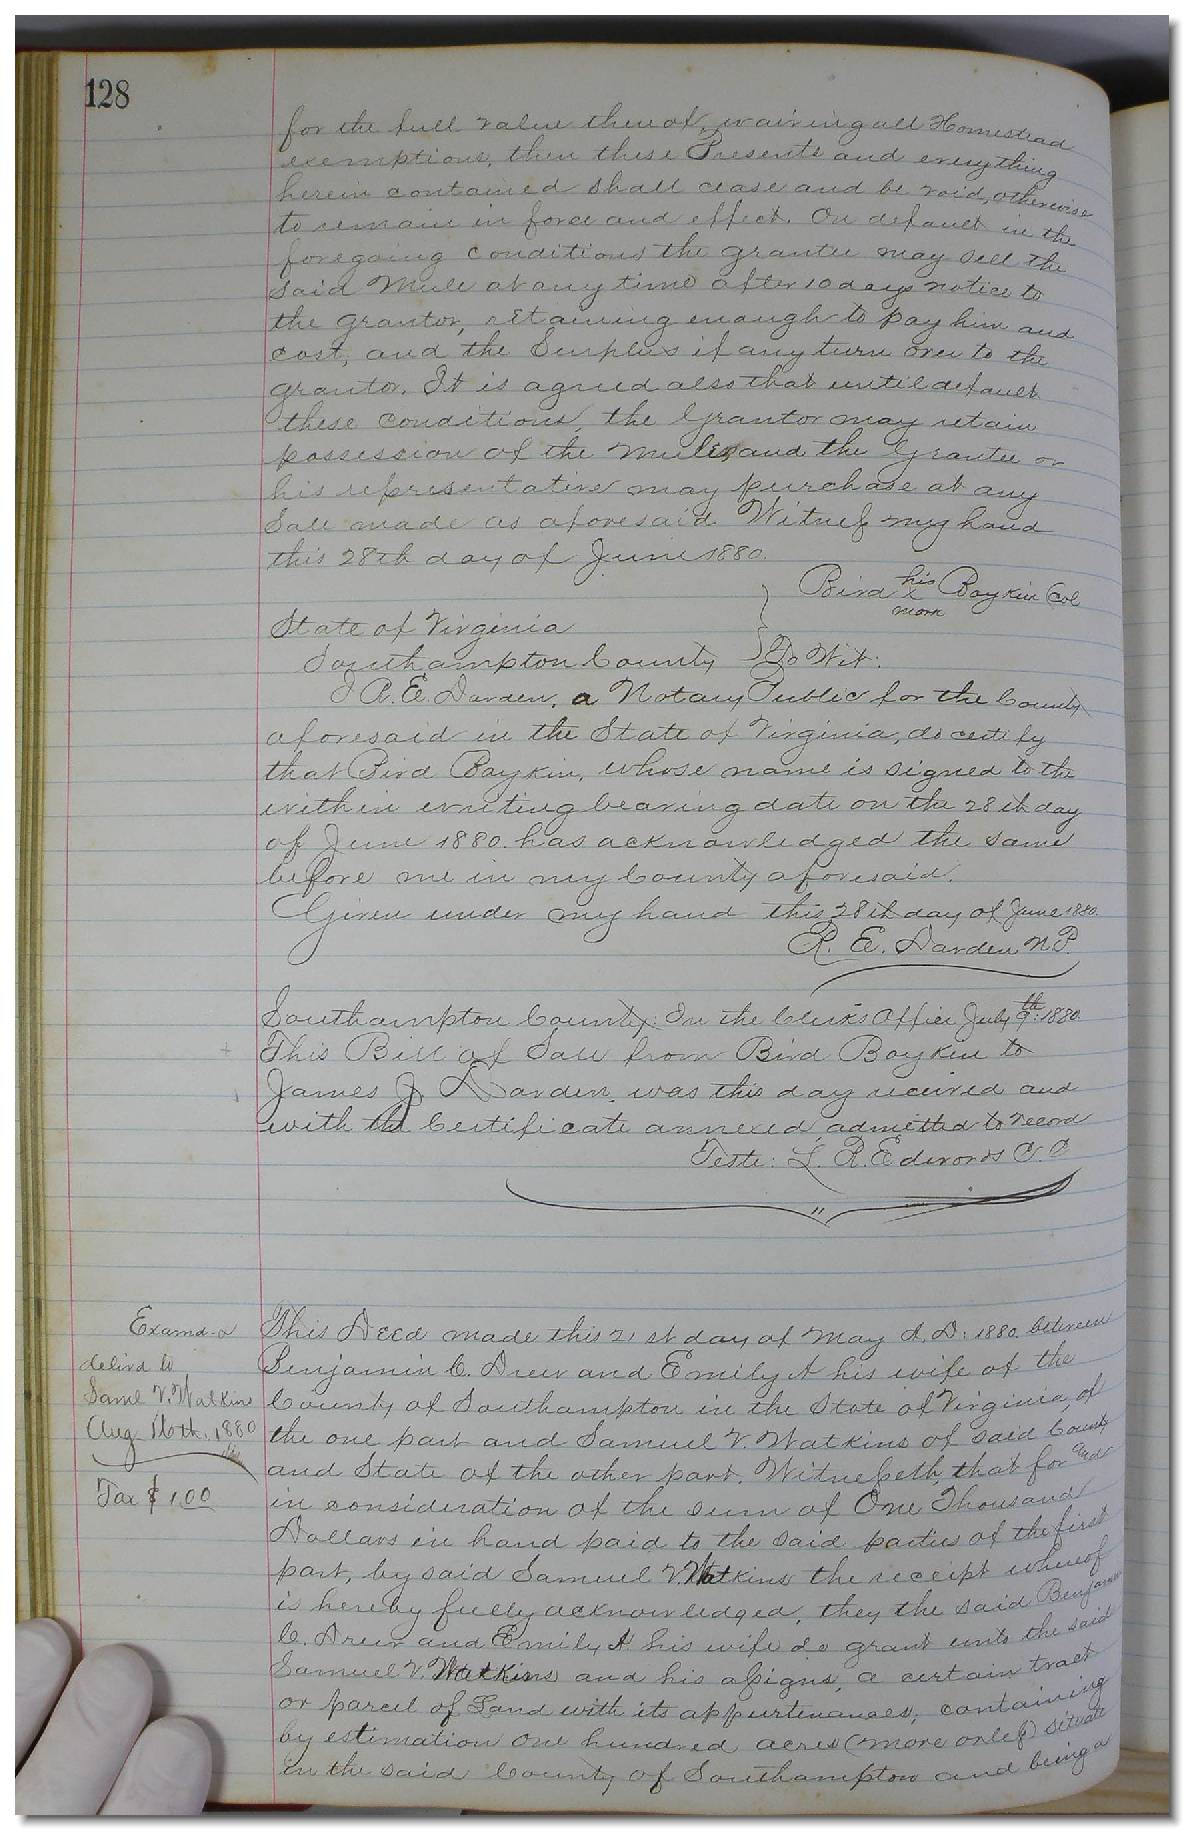 128
for the full value thereof, waiving all Homestead
exemptions, then these Presents and everything
herein contained shall cease and be void, otherwise
to remain in force and effect. On default in the
foregoing conditions the grantee may sell the
said Mule at any time after 10 days notice to
the grantor, retaining enough to pay him and
cost, and the Surplus if any turn over to the
grantor. It is agreed also that until default
these conditions, the Grantor may retain
possession of the mules, and the Grantee or
his representative may purchase at any
Sale made as aforesaid. Witness my hand
this 28th day of June 1880.
Bird his x mark Boykin Col
State of Virginia
Southampton County } To Wit:
I R. E. Darden, a Notary Public for the County
aforesaid in the State of Virginia, do certify
that Bird Boykin, whose name is signed to the
within writing bearing date on the 28th day
of June 1880. has acknowledged the same
before me in my County aforesaid.
Given under my hand this 28th day of June 1880.
R. E. Darden N.P.
Southampton County: In the Clerks Office July 9th 1880.
This Bill of Sale from Bird Boykin to
James J Darden, was this day received and
with the Certificate annexed, admitted to record
Teste: L. R. Edwards C. C
Examd. &
delivd to
Saml V. Watkins
Aug. 16th. 1880
Tax $1.00
This Deed made this 21st day of May A. D. 1880. between
Benjamin C. Drew and Emily A his wife of the
County of Southampton in the State of Virginia, of
the one part and Samuel V. Watkins of said County
and State of the other part. Witnesseth, that for and
in consideration of the sum of One Thousand
Dollars in hand paid to the said parties of the first
part, by said Samuel V. Watkins the receipt whereof
is hereby fully acknowledged, they the said Benjamin
C. Drew and Emily A his wife do grant unto the said
Samuel V. Watkins and his assigns, a certain tract
or parcel of Land with its appurtenances, containing
by estimation one hundred acres (more or less) situate
in the said County of Southampton and being a